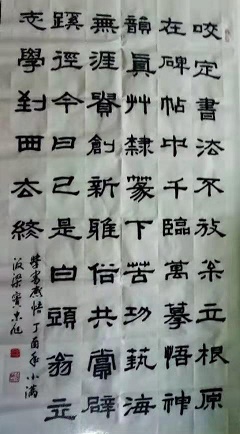 咬定書法不放枀立根原
在碑帖中千臨萬摹悟神
韻真艸隸篆下苦功藝海
無涯貴創新雅俗共賞辟
蹊徑今日已是白頭翁立
志學到西去終
學書感悟丁酉年小滿